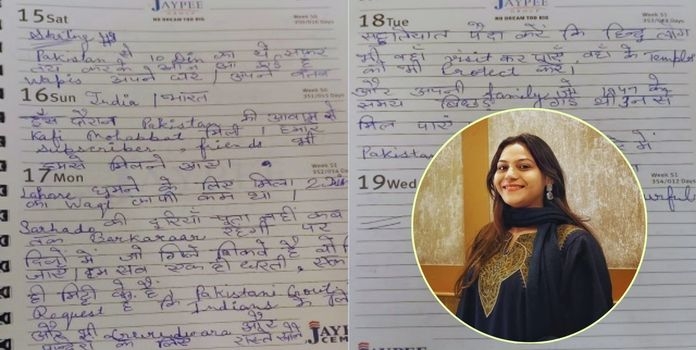 JAYPEE
GROUP
NO DREAM TOO BIG
15 Sat Week 50
Pakistan से 10 Din का ये सफर
करके आ है
Wapis अपने घर / अपने वतन
16 Sun India / भारत Week 50
351/015 Days
इस दौरान Pakistan की आवाम से
Kafi Mohabbat मिली / हमारे
subscriber, friends भी
हमसे मिलने आए।
17 Mon Week 51
352/014 Days
Lahore घूमने के लिए मिला 2
का Waqt काफी कम था।
Sarhado की दूरियाँ पता नहीं कब
तक Barkaraar रहेगी पर
दिलो में जो गिले शिकवे है वो
जाए। हम सब एक ही धरती, एक
ही मिट्टी के है, Pakistani
Request है कि Indians के
और भी Gurudwara और
के लिए रास्ते
JAYPEE
CEM
JAYPEE
GROUP
NO DREAM TOO BIG
18 Tue Week 51
353/013 Days
पैदा करें कि हिन्दू लोग
भी वहाँ visit कर पाएँ, वहाँ के Temples
को भी Protect करें।
और अपनी family जो 1947 के
समय बिछड़ गई थी उनसे
मिल पाएं
Pakistan में
19 Wed Week 51
354/012 Days
JAYPEE